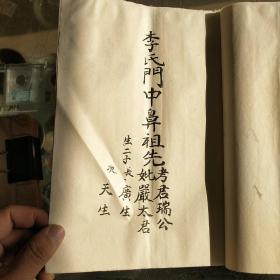 李氏門中鼻祖先
考君瑞公
妣嚴太君
生二子長廣生
次天生